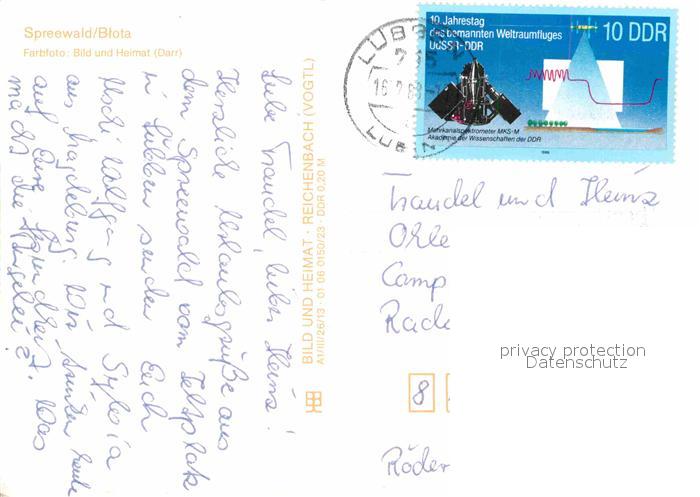 Spreewald/Błota
Farbfoto: Bild und Heimat (Darr)
Liebe Traudel, lieber Heinz!
Herzliche Urlaubsgrüße aus
dem Spreewald vom Zeltplatz
in Lübben senden Euch
Uschi Wolfgang und Sylvia
aus Magdeburg. Wir heute
auf Eure Was
macht die
BILD UND HEIMAT · REICHENBACH (VOGTL)
A1/III/26/13 · 01 06 0150/23 · DDR 0,20 M
LÜBBEN
10. Jahrestag
des bemannten Weltraumfluges
UdSSR-DDR
10 DDR
Mehrkanalspektrometer MKS-M
Akademie der Wissenschaften der DDR
1988
Traudel und Heinz
Camp
8
Röder
privacy protection
Datenschutz